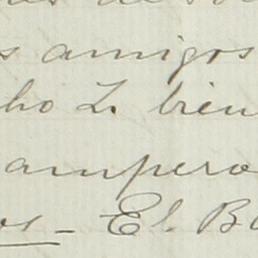 s amigos
ho L. bien
ampero
os - El Bo